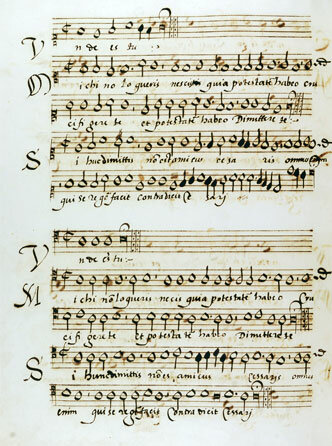 Vnde es tu
Michi no loqueris nescis quia potestatē habeo cru
cifigere te et potestatē habeo Dimittere te
Si hūc dimittis no es amicus cesaris omnis
qui se regē facit contradicit cesari
Vnde es tu
Michi no loqueris necis quia potestatē habeo Cru
cifigere te et potestatē habeo Dimittere te
Si hunc dimittis no es amicus cesaris omnis
enim qui se regē facit Contradicit Cesari